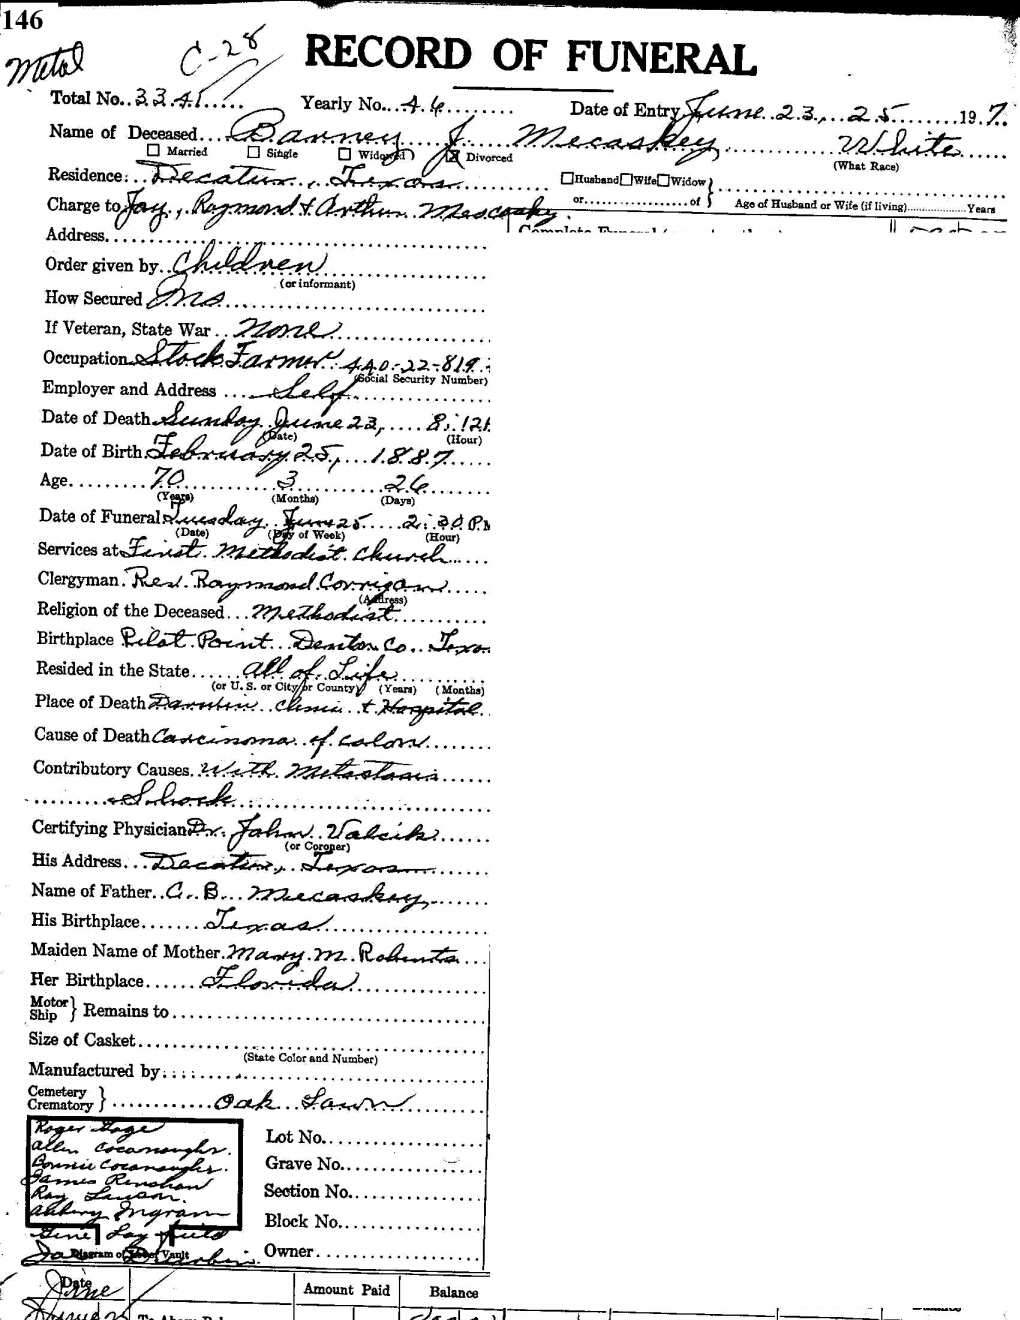 146
Metal C-28
RECORD OF FUNERAL
Total No.. 3341..... Yearly No... 46........ Date of Entry June 23, 25 ........ 1957.
Name of Deceased.... Barney J. Mecaskey White
☐ Married ☐ Single ☐ Widowed ☒ Divorced (What Race)
Residence: Decatur, Texas ☐Husband☐Wife☐Widow}
or..................of Age of Husband or Wife (if living)....................Years
Charge to Jay, Raymond & Arthur Mecaskey.
Address
Order given by.. Children
(or informant)
How Secured Ins
If Veteran, State War .. None
Occupation Stock Farmer 440-22-819
(Social Security Number)
Employer and Address .... Self
Date of Death Sunday June 23, .... 8:12
(Date) (Hour)
Date of Birth February 25, ... 1887
Age......... 70 3 26
(Years) (Months) (Days)
Date of Funeral Tuesday June 25 2:30 P.M
(Date) (Day of Week) (Hour)
Services at First Methodist Church
Clergyman. Rev. Raymond Corrigan
(Address)
Religion of the Deceased... Methodist
Birthplace Pilot Point Denton Co. Texas
Resided in the State...... All of Life
(or U. S. or City or County) (Years) (Months)
Place of Death Clinic & Hospital
Cause of Death Carcinoma of colon
Contributory Causes. With Metastasis
Shock
Certifying Physician Dr. John Valcik
(or Coroner)
His Address... Decatur, Texas
Name of Father.. C. B. Mecaskey
His Birthplace....... Texas
Maiden Name of Mother. Mary M. Roberts
Her Birthplace...... Florida
Motor Ship } Remains to
Size of Casket
(State Color and Number)
Manufactured by
Cemetery Crematory } Oak Lawn
Roger Gage
Allen Cocanougher.
Bonnie Cocanougher.
James Renshaw
Ray Lawson.
Aubrey Ingram
Gene
Diagram of Lot or Vault
Lot No.
Grave No.
Section No.
Block No.
Owner
Date Amount Paid Balance
June